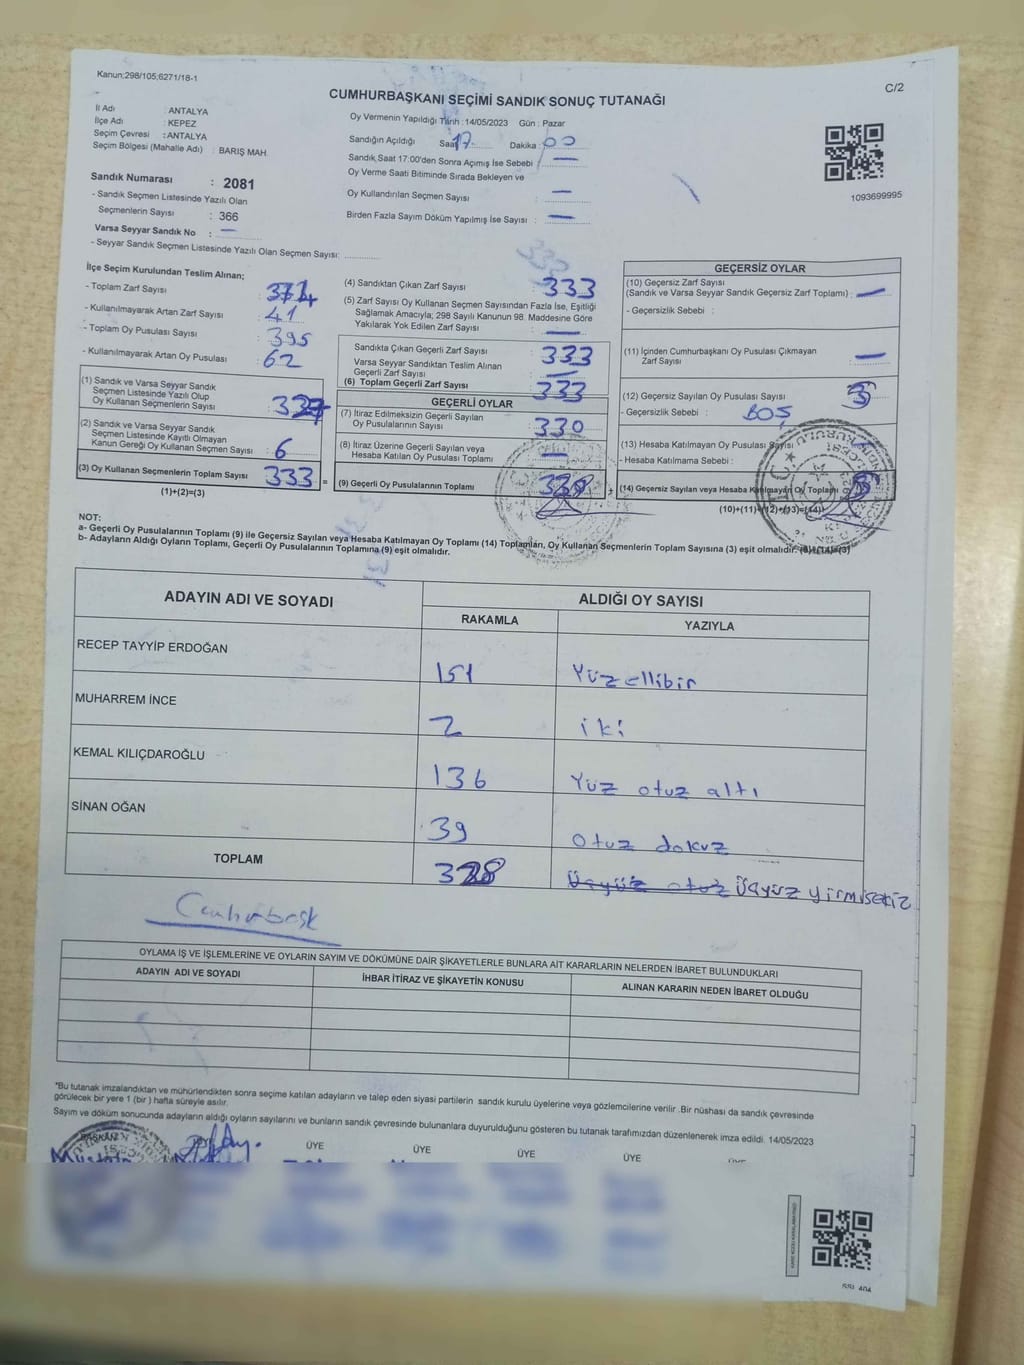 Kanun:298/105;6271/18-1
C/2
CUMHURBAŞKANI SEÇİMİ SANDIK SONUÇ TUTANAĞI
İl Adı : ANTALYA
İlçe Adı : KEPEZ
Seçim Çevresi : ANTALYA
Seçim Bölgesi (Mahalle Adı) : BARIŞ MAH.
Sandık Numarası : 2081
- Sandık Seçmen Listesinde Yazılı Olan
Seçmenlerin Sayısı : 366
Varsa Seyyar Sandık No : —
- Seyyar Sandık Seçmen Listesinde Yazılı Olan Seçmen Sayısı:
Oy Vermenin Yapıldığı Tarih : 14/05/2023 Gün : Pazar
Sandığın Açıldığı Saat 17 Dakika : 00
Sandık Saat 17:00'den Sonra Açılmış İse Sebebi : —
Oy Verme Saati Bitiminde Sırada Bekleyen ve
Oy Kullandırılan Seçmen Sayısı : —
Birden Fazla Sayım Döküm Yapılmış İse Sayısı : —
1093699995
İlçe Seçim Kurulundan Teslim Alınan;
- Toplam Zarf Sayısı : 374
- Kullanılmayarak Artan Zarf Sayısı : 41
- Toplam Oy Pusulası Sayısı : 395
- Kullanılmayarak Artan Oy Pusulası : 62
(1) Sandık ve Varsa Seyyar Sandık
Seçmen Listesinde Yazılı Olup
Oy Kullanan Seçmenlerin Sayısı : 327
(2) Sandık ve Varsa Seyyar Sandık
Seçmen Listesinde Kayıtlı Olmayan
Kanun Gereği Oy Kullanan Seçmen Sayısı : 6
(3) Oy Kullanan Seçmenlerin Toplam Sayısı 333 =
(1)+(2)=(3)
(4) Sandıktan Çıkan Zarf Sayısı : 333
(5) Zarf Sayısı Oy Kullanan Seçmen Sayısından Fazla İse, Eşitliği
Sağlamak Amacıyla; 298 Sayılı Kanunun 98. Maddesine Göre
Yakılarak Yok Edilen Zarf Sayısı : —
Sandıkta Çıkan Geçerli Zarf Sayısı : 333
Varsa Seyyar Sandıktan Teslim Alınan
Geçerli Zarf Sayısı : —
(6) Toplam Geçerli Zarf Sayısı : 333
GEÇERLİ OYLAR
(7) İtiraz Edilmeksizin Geçerli Sayılan
Oy Pusulalarının Sayısı : 330
(8) İtiraz Üzerine Geçerli Sayılan veya
Hesaba Katılan Oy Pusulası Toplamı : —
(9) Geçerli Oy Pusulalarının Toplamı 328 +
GEÇERSİZ OYLAR
(10) Geçersiz Zarf Sayısı
(Sandık ve Varsa Seyyar Sandık Geçersiz Zarf Toplamı) : —
- Geçersizlik Sebebi :
(11) İçinden Cumhurbaşkanı Oy Pusulası Çıkmayan
Zarf Sayısı : —
(12) Geçersiz Sayılan Oy Pusulası Sayısı : 5
- Geçersizlik Sebebi : BOŞ
(13) Hesaba Katılmayan Oy Pusulası Sayısı
- Hesaba Katılmama Sebebi :
(14) Geçersiz Sayılan veya Hesaba Katılmayan Oy Toplamı 5
(10)+(11)+(12)+(13)=(14)
NOT:
a- Geçerli Oy Pusulalarının Toplamı (9) ile Geçersiz Sayılan veya Hesaba Katılmayan Oy Toplamı (14) Toplamları, Oy Kullanan Seçmenlerin Toplam Sayısına (3) eşit olmalıdır. (9)+(14)=(3)
b- Adayların Aldığı Oyların Toplamı, Geçerli Oy Pusulalarının Toplamına (9) eşit olmalıdır.
ADAYIN ADI VE SOYADI ALDIĞI OY SAYISI
RAKAMLA YAZIYLA
RECEP TAYYİP ERDOĞAN 151 Yüzellibir
MUHARREM İNCE 2 iki
KEMAL KILIÇDAROĞLU 136 Yüz otuz altı
SİNAN OĞAN 39 otuz dokuz
TOPLAM 328 Üçyüz otuz Üçyüz yirmisekiz
Cumhurbaşk
OYLAMA İŞ VE İŞLEMLERİNE VE OYLARIN SAYIM VE DÖKÜMÜNE DAİR ŞİKAYETLERLE BUNLARA AİT KARARLARIN NELERDEN İBARET BULUNDUKLARI
ADAYIN ADI VE SOYADI İHBAR İTİRAZ VE ŞİKAYETİN KONUSU ALINAN KARARIN NEDEN İBARET OLDUĞU
*Bu tutanak imzalandıktan ve mühürlendikten sonra seçime katılan adayların ve talep eden siyasi partilerin sandık kurulu üyelerine veya gözlemcilerine verilir .Bir nüshası da sandık çevresinde
görülecek bir yere 1 (bir ) hafta süreyle asılır.
Sayım ve döküm sonucunda adayların aldığı oyların sayılarını ve bunların sandık çevresinde bulunanlara duyurulduğunu gösteren bu tutanak tarafımızdan düzenlenerek imza edildi. 14/05/2023
BAŞKAN ÜYE ÜYE ÜYE ÜYE ÜYE